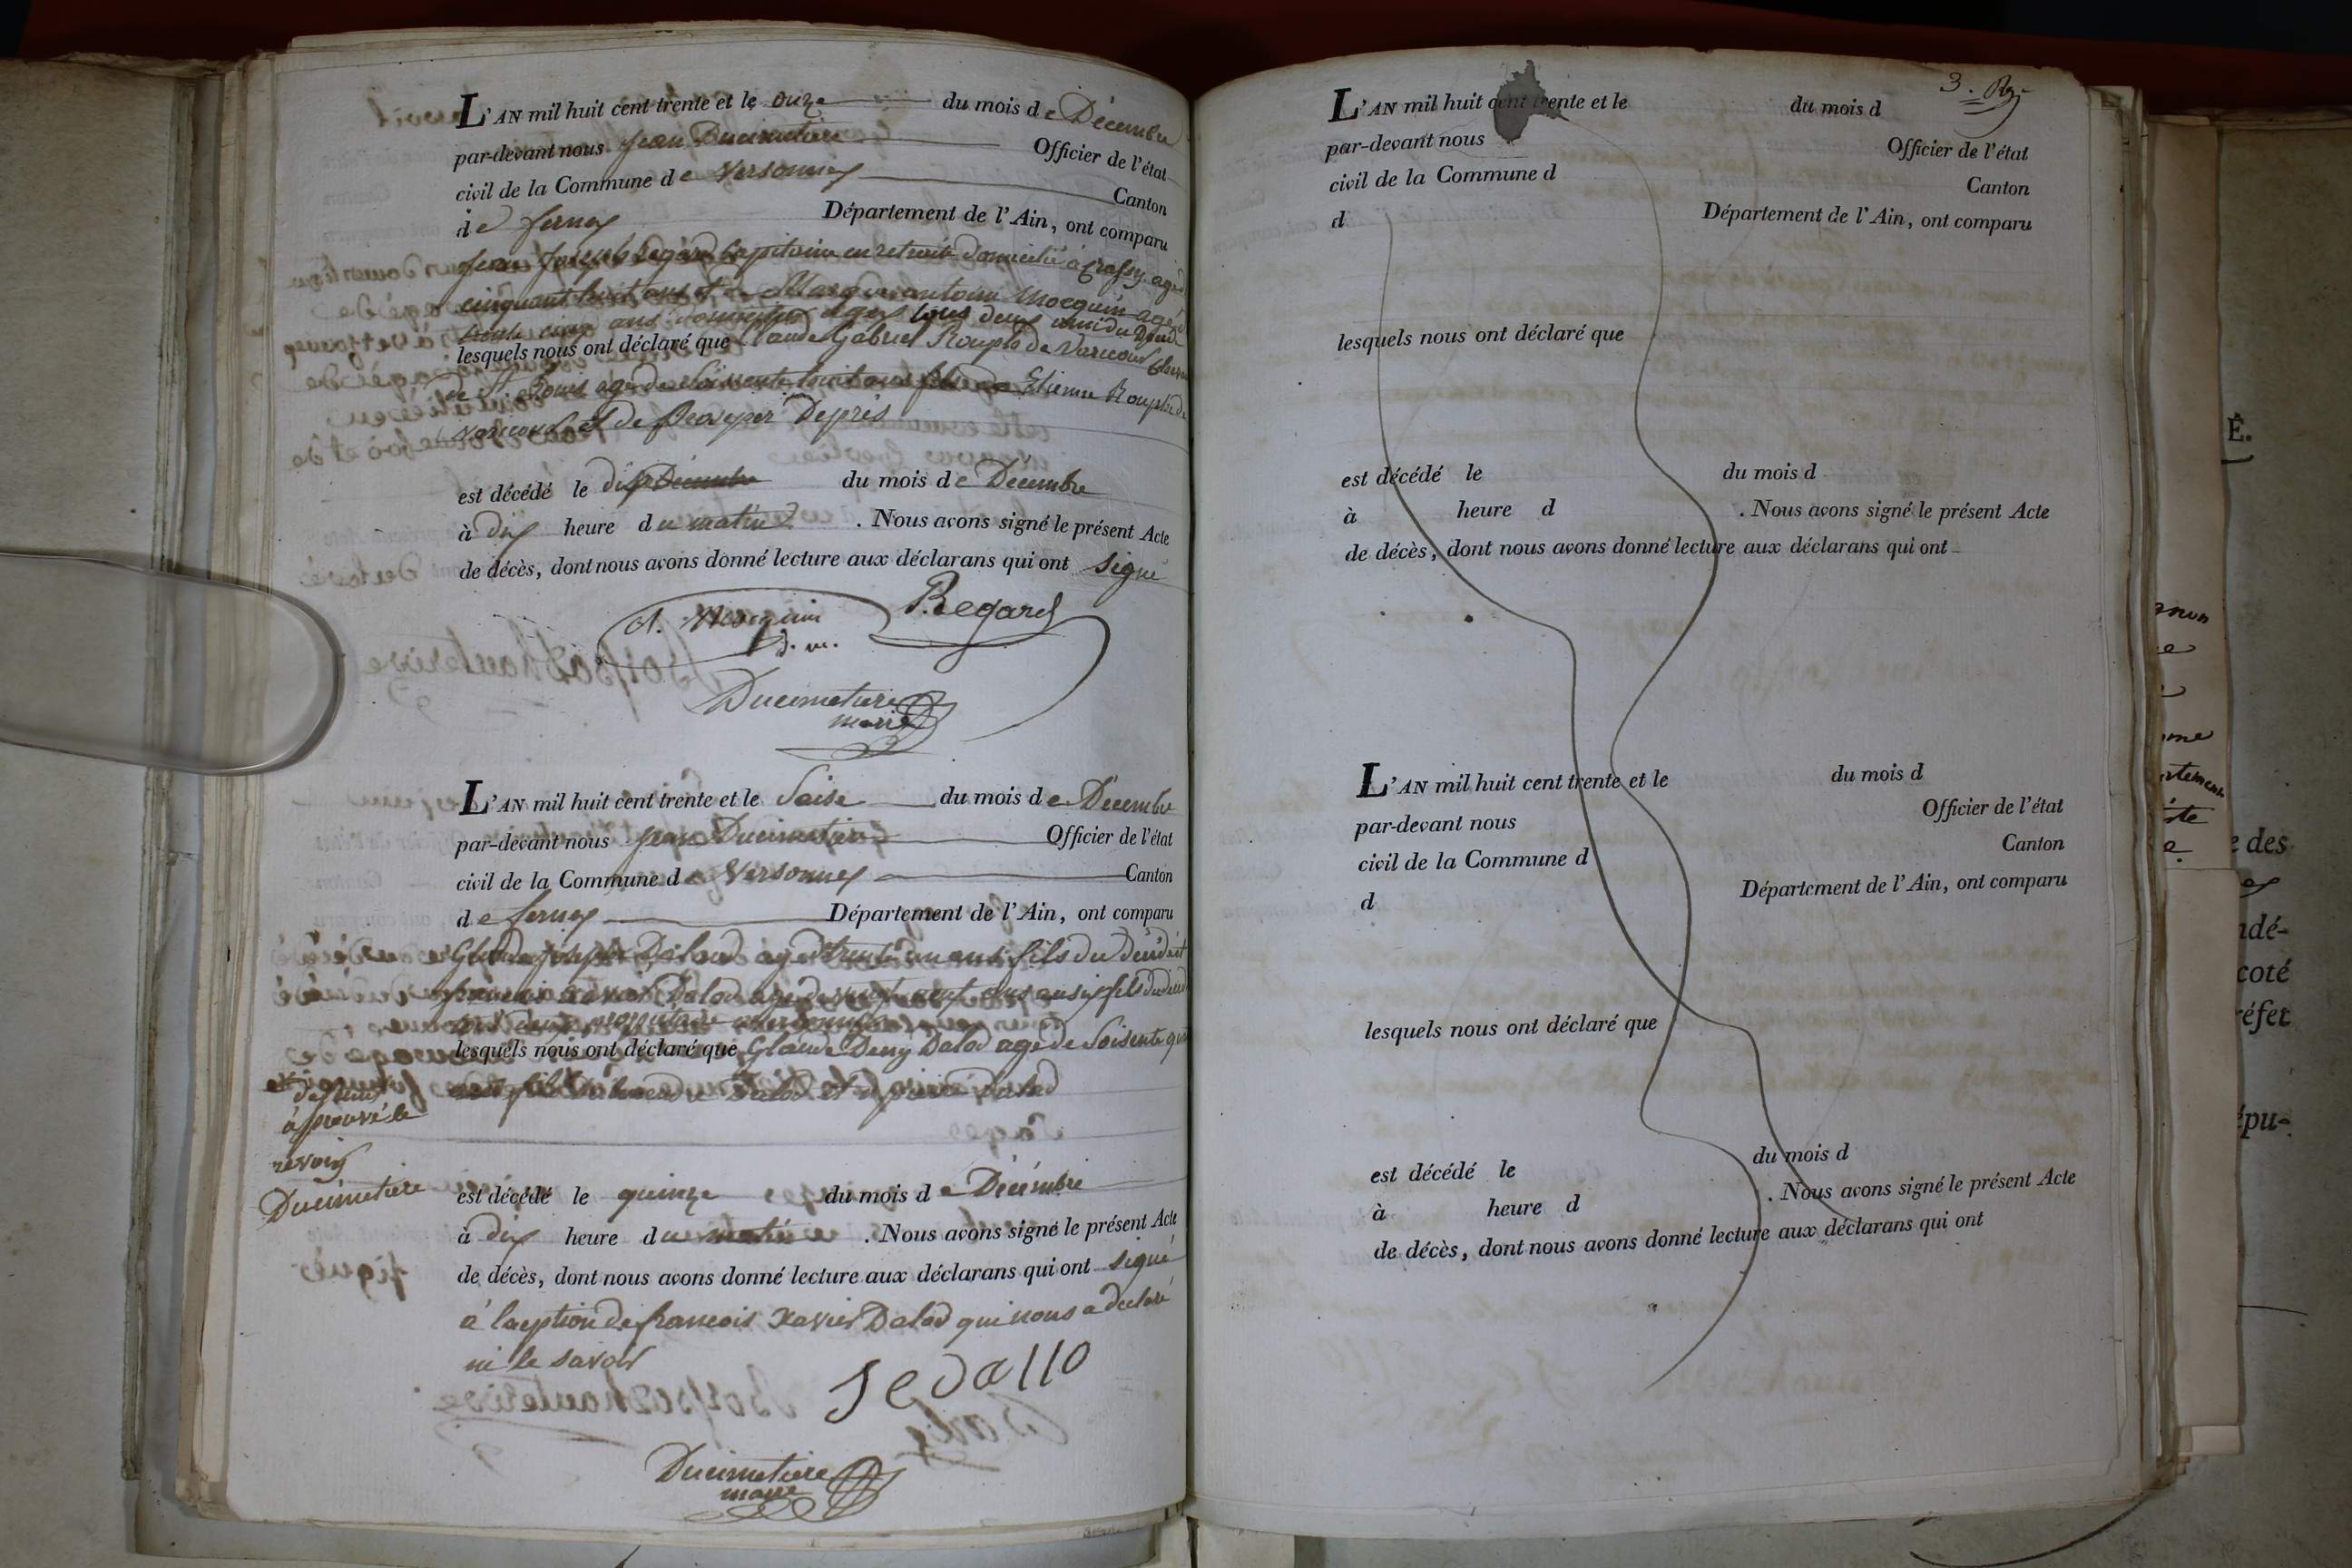 L'AN mil huit cent trente et le onze du mois de Décembre
par-devant nous jean Ducimetiere Officier de l'état
civil de la Commune de Versonnex Canton
de fernex Département de l'Ain, ont comparu
jean joseph Regard Capitaine en retraite domicilié à Crassy agé
cinquant huit ans et Marque antoine Mocquin agé
trente cinq ans tous deux ami du
lesquels nous ont déclaré que Claude Gabriel Rouph de Varicour
de St. Louis agé de Soissente huit ans fils de Etienne Rouph de
varicour et de prosper Deprés
est décédé le dix Décembre du mois de Décembre
à dix heure du matin . Nous avons signé le présent Acte
de décès, dont nous avons donné lecture aux déclarans qui ont signé
A. Mocquin Regard
d. m.
Ducimetiere
maire
L'AN mil huit cent trente et le Saise du mois de Décembre
par-devant nous jean Ducimetiere Officier de l'état
civil de la Commune de Versonnex Canton
de fernex Département de l'Ain, ont comparu
Glaude joseph Dalod agé trente un ans fils du
francois xavier Dalod agé de vingt neuf ans ausi fils du
lesquels nous ont déclaré que Glaude Deny Dalod age de Soisente
fils Dalod et Dalod
aprouvé le
renvoij
Ducimetiere
est décédé le quinze du mois de Décémbre
à dix heure du matin . Nous avons signé le présent Acte
de décès, dont nous avons donné lecture aux déclarans qui ont signé
à laeption de francois Xavier Dalod qui nous a declaré
ni le savoir
Ducimetiere
maire
3.
L'AN mil huit cent trente et le du mois d
par-devant nous Officier de l'état
civil de la Commune d Canton
d Département de l'Ain, ont comparu
lesquels nous ont déclaré que
est décédé le du mois d
à heure d . Nous avons signé le présent Acte
de décès, dont nous avons donné lecture aux déclarans qui ont
L'AN mil huit cent trente et le du mois d
par-devant nous Officier de l'état
civil de la Commune d Canton
d Département de l'Ain, ont comparu
lesquels nous ont déclaré que
est décédé le du mois d
à heure d . Nous avons signé le présent Acte
de décès, dont nous avons donné lecture aux déclarans qui ont